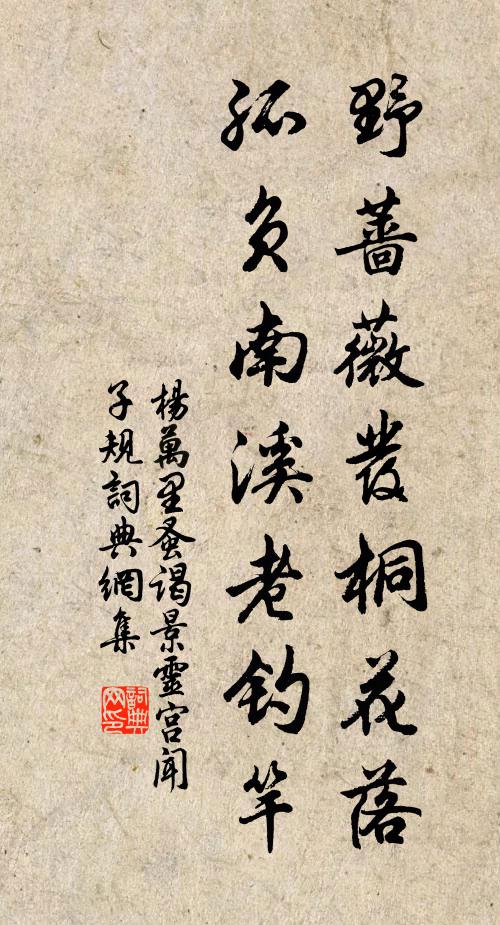 野薔薇發桐花落
孤負南溪老釣竿
楊萬里蚤謁景靈宮聞
子規詞典網集
詞典
网印